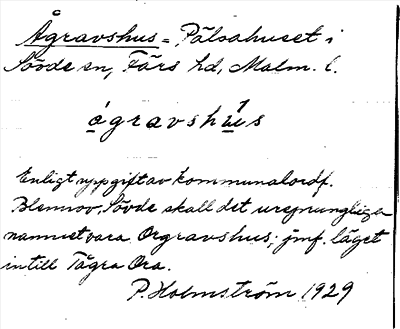 Ågravshus = Pälsahuset i
Sövde sn, Färs hd, Malm. l.
ógravshús
Enligt uppgift av kommunalordf.
Blennov, Sövde skall det ursprungliga
namnet vara Orgravshus; jmf. läget
intill Tågra Ora.
P. Holmström 1929